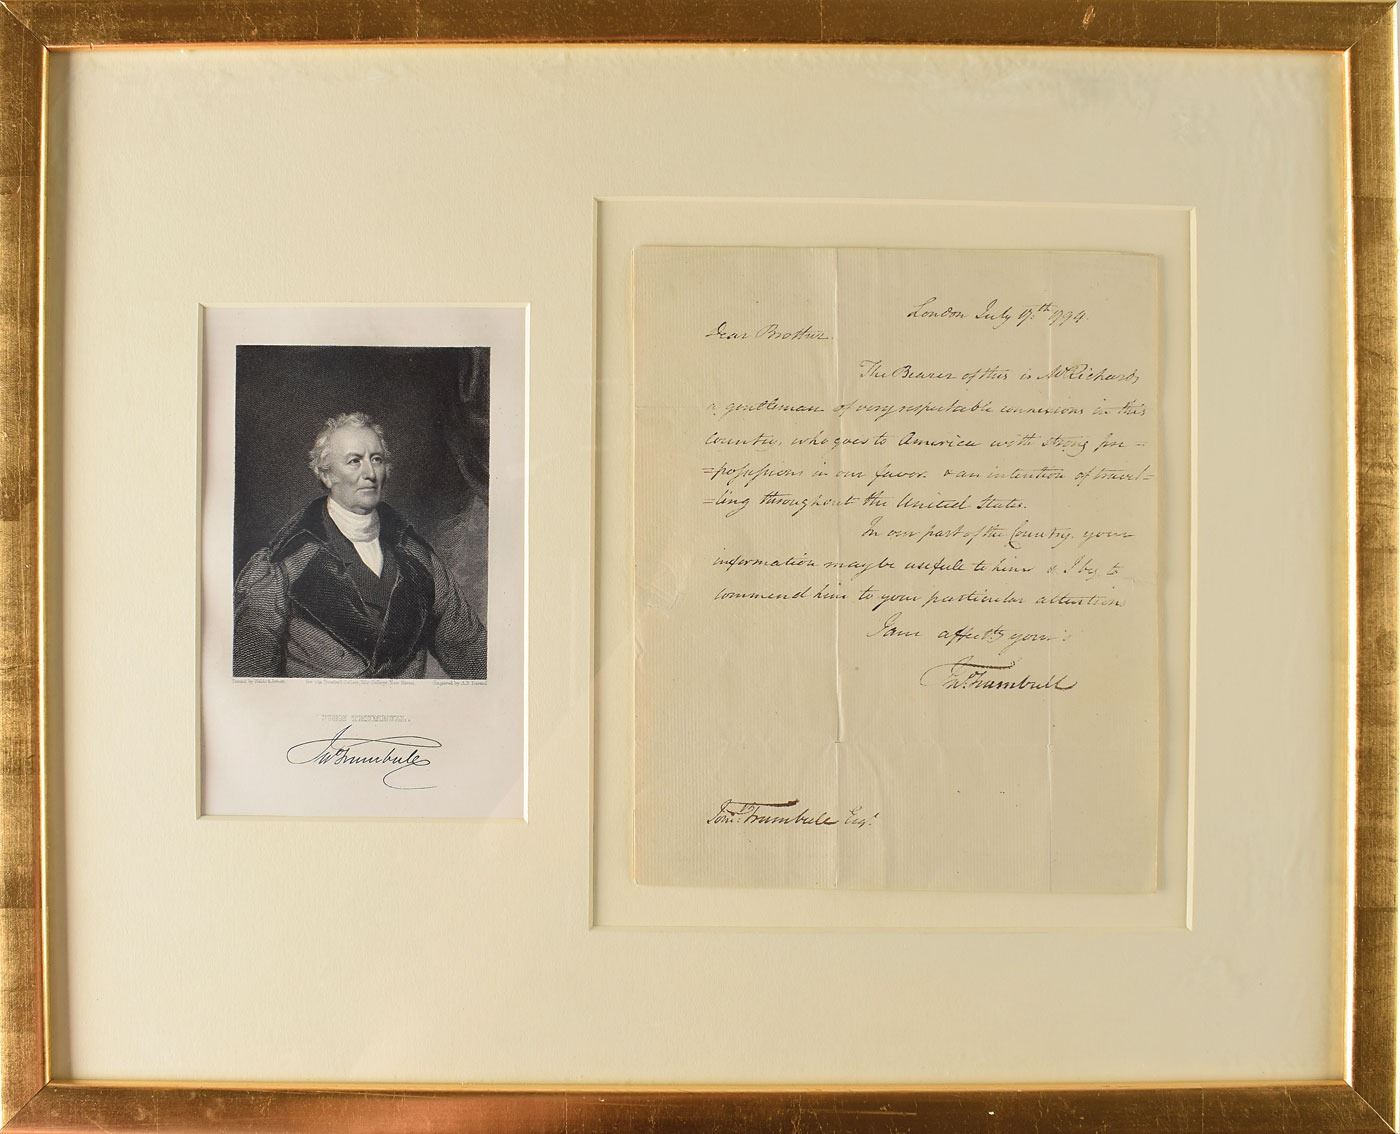 London July 17th 1794.
Dear Brother.
The Bearer of this is Mr Richards
a gentleman of very respectable connexions in this
Country, who goes to America with strong pre=
=possessions in our favor. & an intention of travel=
=ling throughout the United States.
In our part of the Country, your
information may be usefull to him & I beg to
commend him to your particular attention
I am affectly yours
Jno Trumbull
Jonn Trumbull Esqr
Painted by Waldo & Jewett
Engraved by A.B. Durand
JOHN TRUMBULL.
Jno Trumbull